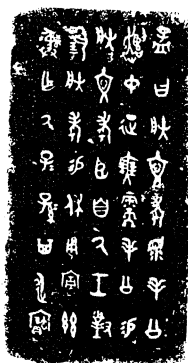 孟曰朕文考眔毛公
遣中征無需毛公易
朕文考臣自氒工對
揚朕考易休用宣茲
彝乍氒子子孫孫其永寶